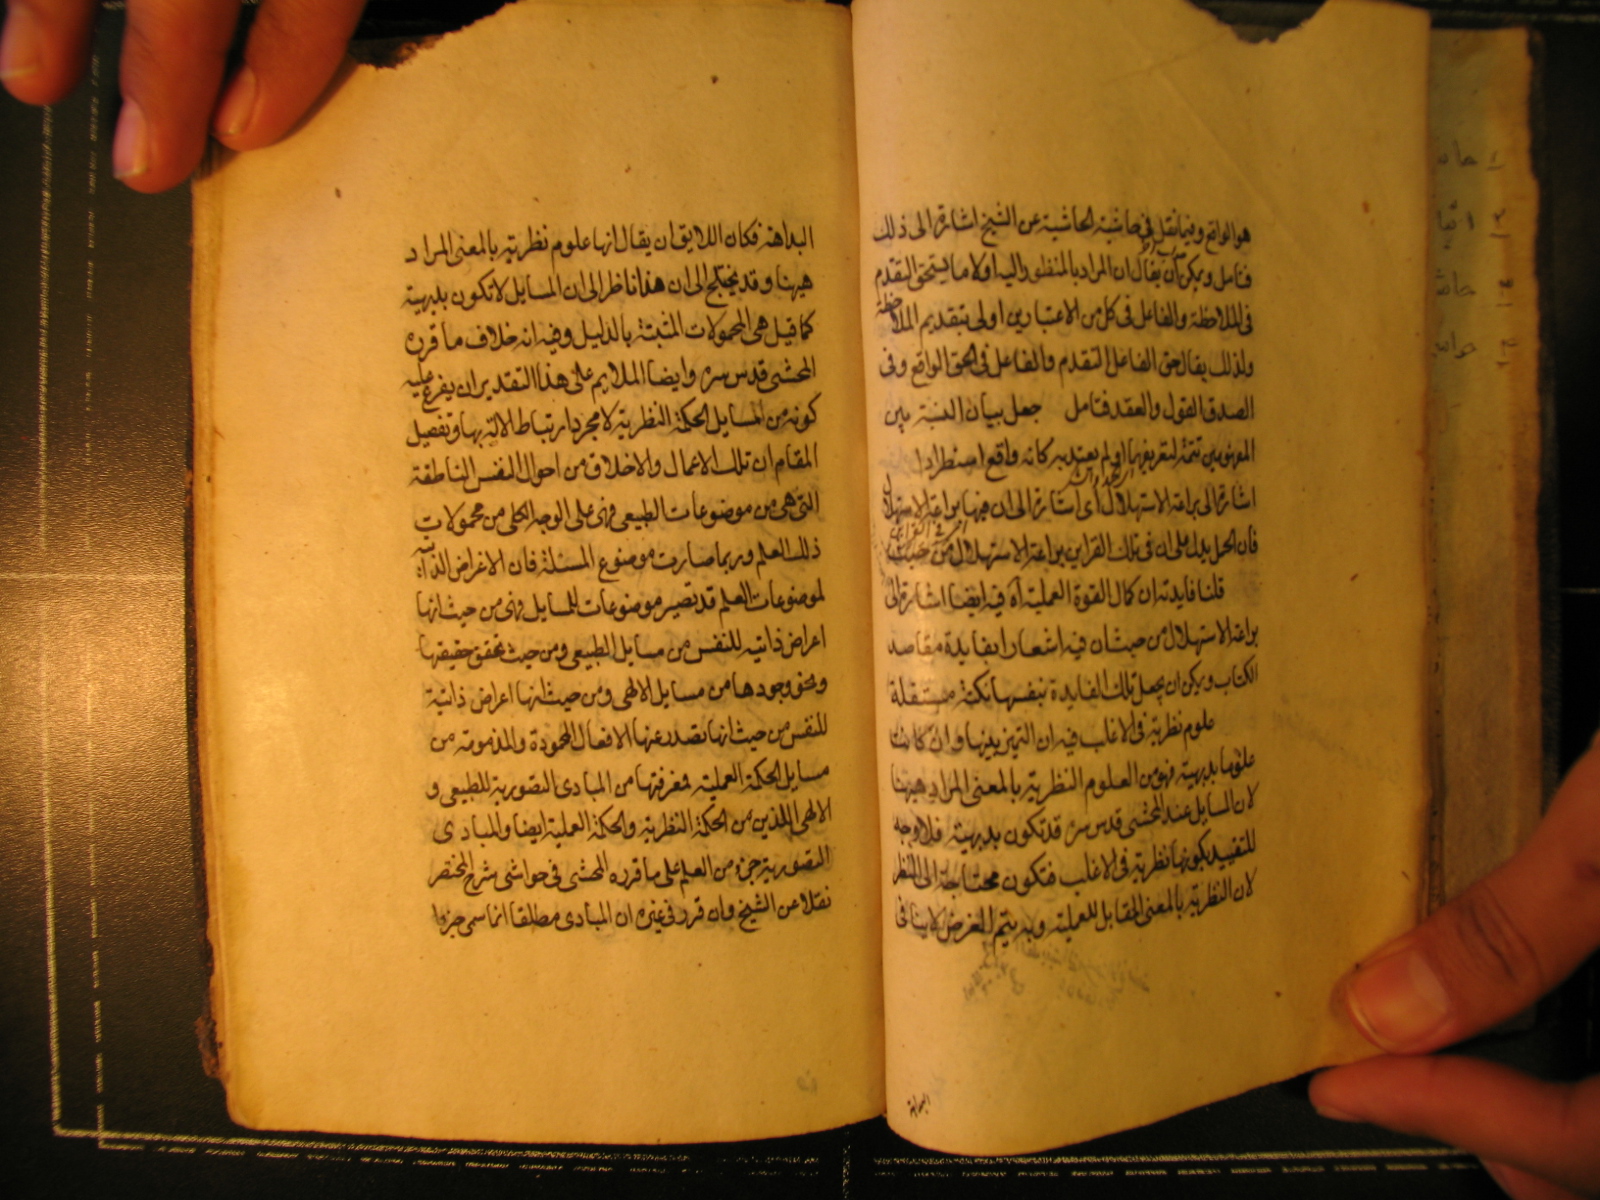 هو الواقع وفيما نقل فى حاشية الحاشية عن الشيخ اشارة الى ذلك
فتامل ويمكن ان يقال ان المراد بالمنظور اليه اولا ما يستحق التقدم
فى الملاحظة والفاعل فى كل من الاعتبارين اولى بتقديم الملاحظة
ولذلك يقال حق الفاعل التقدم والفاعل فى الحق الواقع وفى
الصدق القول والعقد فتامل جعل بيان النسبة بين
المفهومين تتمة لتعريفهما او لم يعتد به كانه واقع استطرادا
اشارة الى براعة الاستهلال أى اشارة الى ان فيها براعة الاستهلال
فان الحمل يدل على ان فى تلك القراين براعة الاستهلال من حيث
قلنا فايدته ان كمال القوة العملية آه فيه ايضا اشارة الى
براعة الاستهلال من حيث ان فيه اشعارا بفايدة مقاصد
الكتاب ويمكن ان يجعل تلك الفايدة بنفسها نكتة مستقلة
علوم نظرية فى الاغلب فيه ان التهذيب وان كانت
علوما بديهية فهو من العلوم النظرية بالمعنى المراد هيهنا
لان المسايل عند المحشى قدس سره قد تكون بديهية فلا وجه
للتقييد بكونها نظرية فى الاغلب فتكون محتاجة الى النظر
لان النظرية بالمعنى المقابل للعملية وبه يتم الغرض لا ينافى
البداهة
البداهة فكان اللايق ان يقال انها علوم نظرية بالمعنى المراد
هيهنا وقد يختلج الى ان هذا ناظر الى ان المسايل لا تكون بديهية
كما قيل هى المحمولات المثبتة بالدليل وفيه انه خلاف ما قرره
المحشى قدس سره وايضا الملايم على هذا التقدير ان يفرع عليه
كونه من المسايل الحكمة النظرية لا مجرد ارتباط الالة بها وتفصيل
المقام ان تلك الاعمال والاخلاق من احوال النفس الناطقة
التى هى من موضوعات الطبيعى فهى على الوجه الكلى من محمولات
ذلك العلم وربما صارت موضوع المسئلة فان الاعراض الذاتية
لموضوعات العلم قد تصير موضوعات للمسايل فهى من حيث انها
اعراض ذاتية للنفس من مسايل الطبيعى ومن حيث تحقق حقيقتها
ونحو وجودها من مسايل الالهى ومن حيث انها اعراض ذاتية
للنفس من حيث انها تصدر عنها الافعال المحمودة والمذمومة من
مسايل الحكمة العملية فمعرفتها من المبادى التصورية للطبيعى و
الالهى اللذين من الحكمة النظرية والحكمة العملية ايضا والمبادى
التصورية جزو من العلم على ما قرره المحشى فى حواشى شرح المختصر
نقلا عن الشيخ وان قرر فى غيره ان المبادى مطلقا انما سمى جزءا